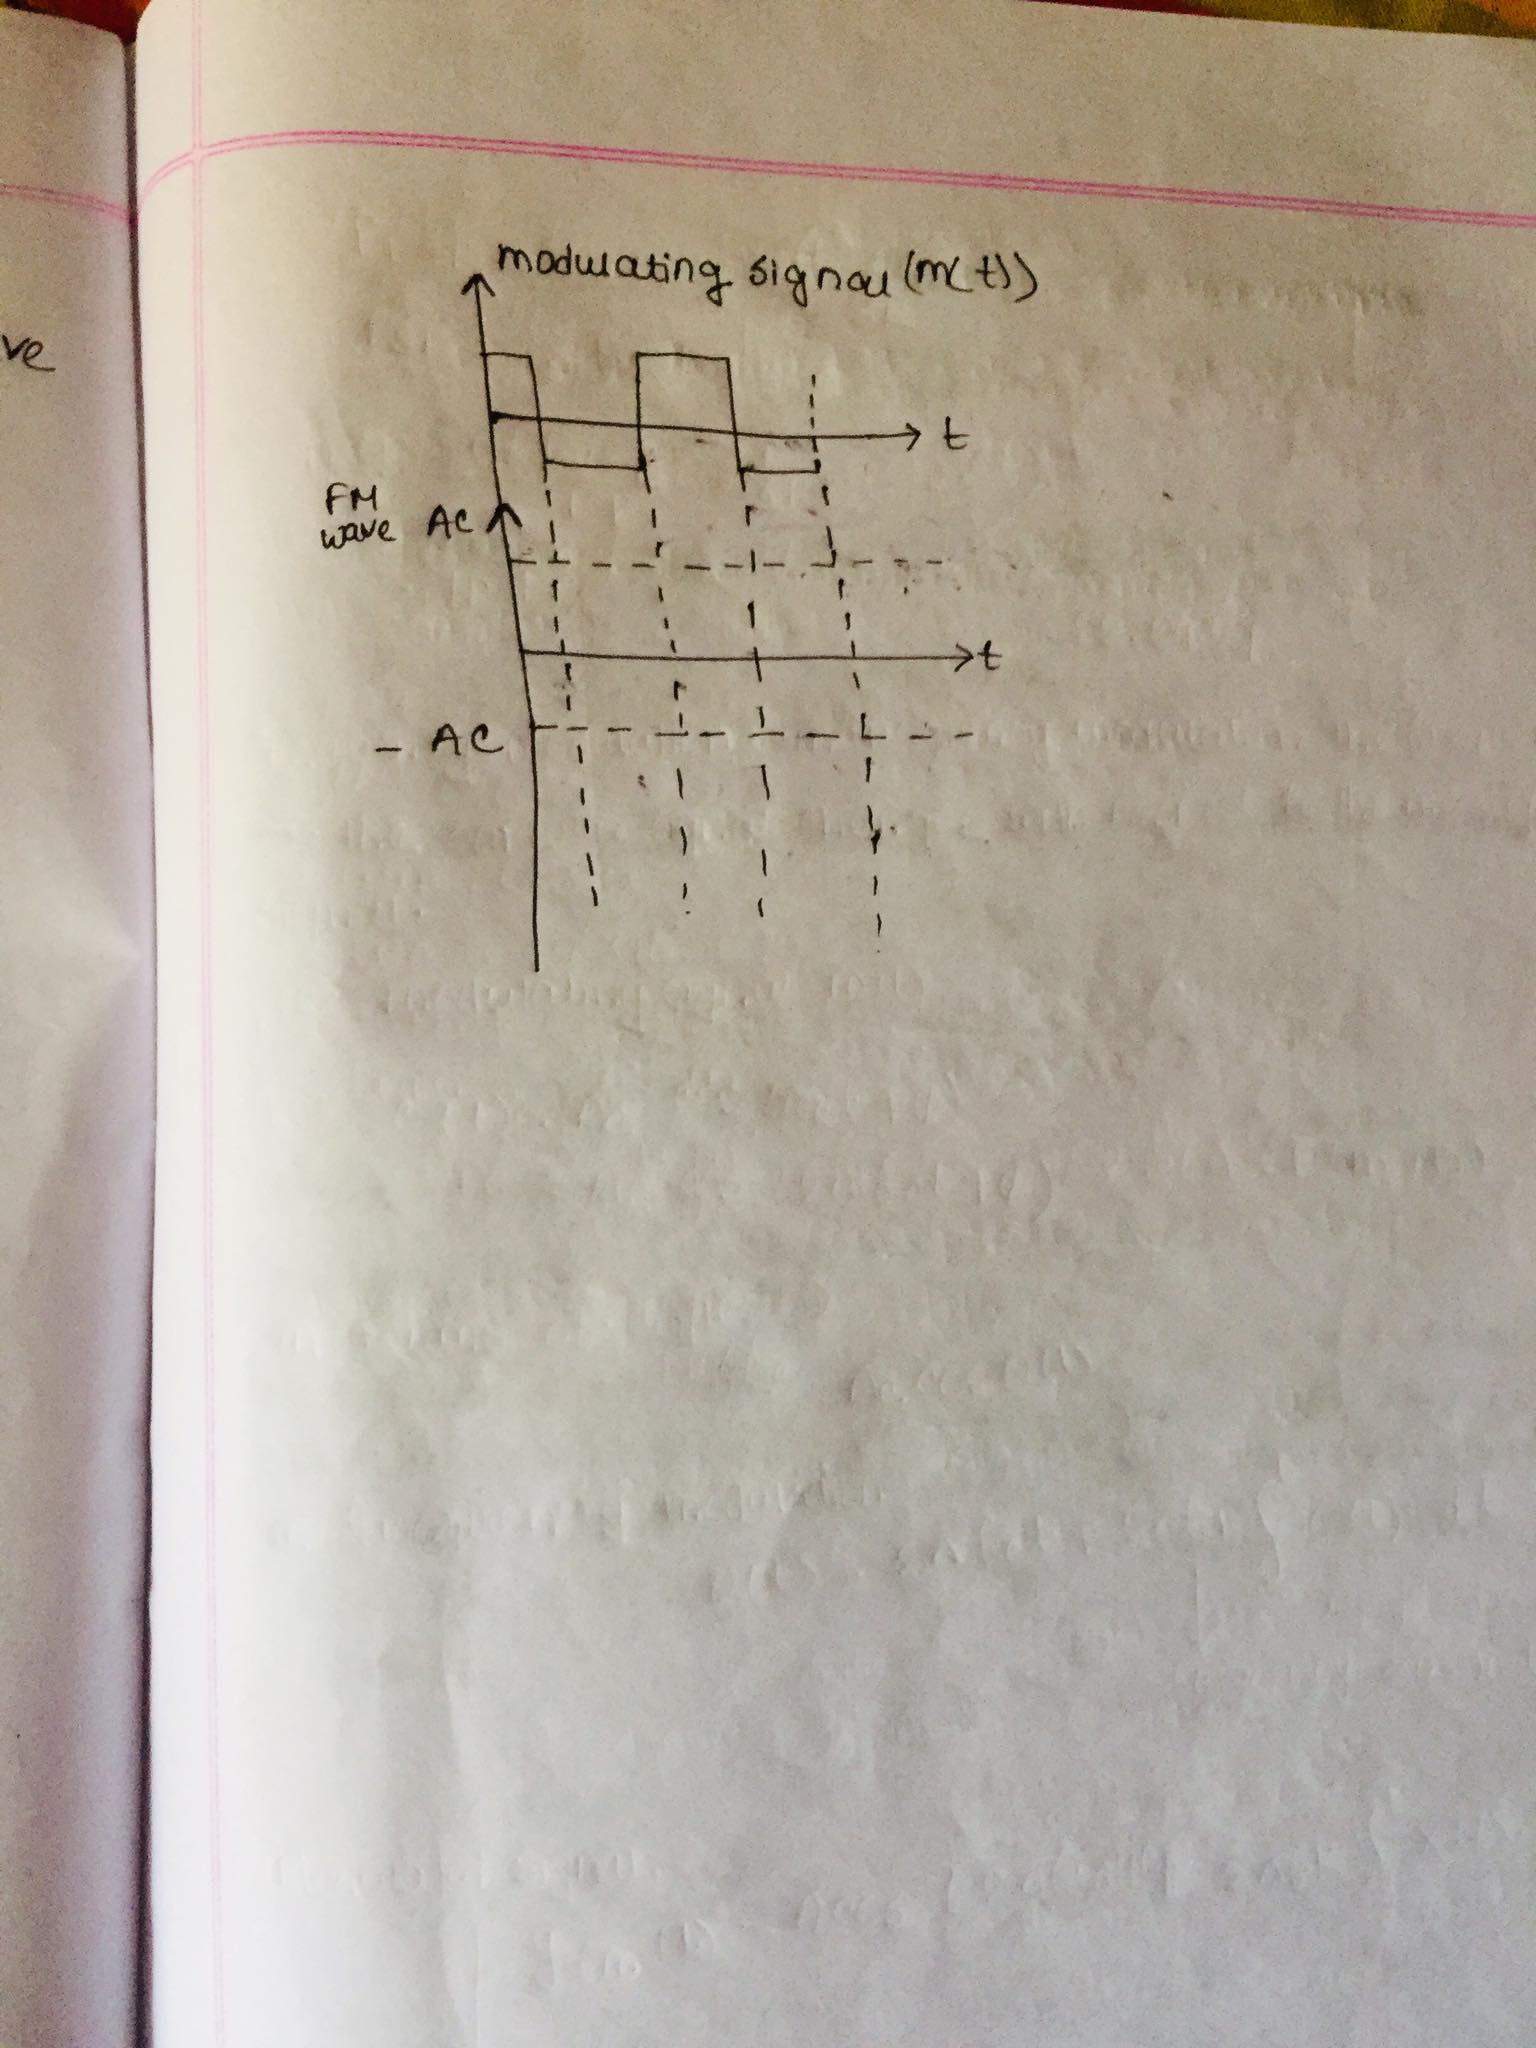 ve
modulating signal (m(t))
t
FM
wave AC
t
- AC